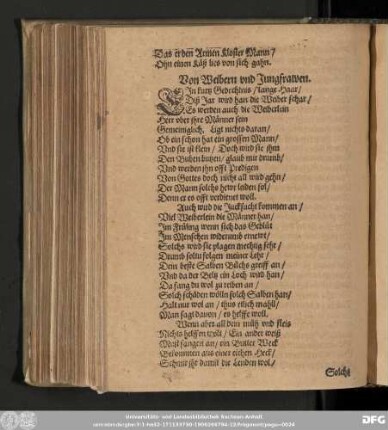 Das er den Armen Kloster Mann /
Ohn einen Käß lies von sich gahn.
Von Weibern und Jungfrawen.
Ein kurtz Gedechtnis / langs Haar /
Diß Jar wird han die Weiber schar /
Es werden auch die Weiberlein
Herr ober ihre Männer sein
Gemeiniglich, ligt nichts daran /
Ob ein schon hat ein grossen Mann /
Und sie ist klein / Doch wird sie ihm
Den Buben butzen / glaub mir drumb /
Und werden ihn offt Predigen
Von Gottes doch nicht all wird gehn /
Der Mann solchs hewr leiden sol /
Denn er es offt verdienet woll.
Auch wird die Jucksucht kommen an /
Viel Weiberlein die Männer han /
Im Früling wenn sich das Geblüt
Im Menschen widerumb ernewt /
Solchs wird sie plagen mechtig sehr /
Drumb soltu folgen meiner Lehr /
Dein beste Salben Büchs greiff an /
Und da der Beltz ein Loch wird han /
Da fang du wol zu reiben an /
Solch schäden wölln solch Salben han /
Halt nur wol an / thus etlich mahl /
Man sagt davon / es helffe woll.
Wenn aber all dein müh und fleis
Nichts helffen wolt / Ein ander weiß
Must fangen an / ein Butter Weck
Besonnnen aus einer eichen Heck /
Schmir ihr damit die Lenden wol /
Solchs
Universitäts- und Landesbibliothek Sachsen-Anhalt